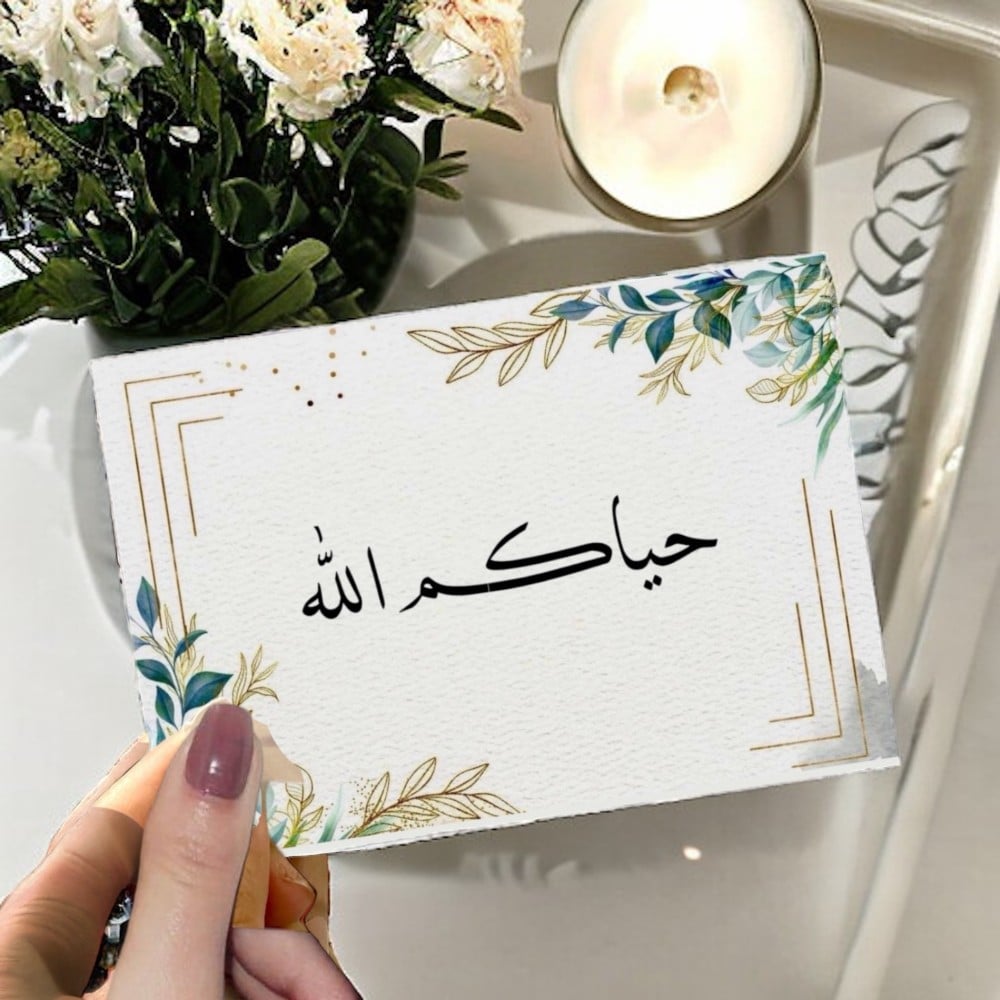 حياكم الله